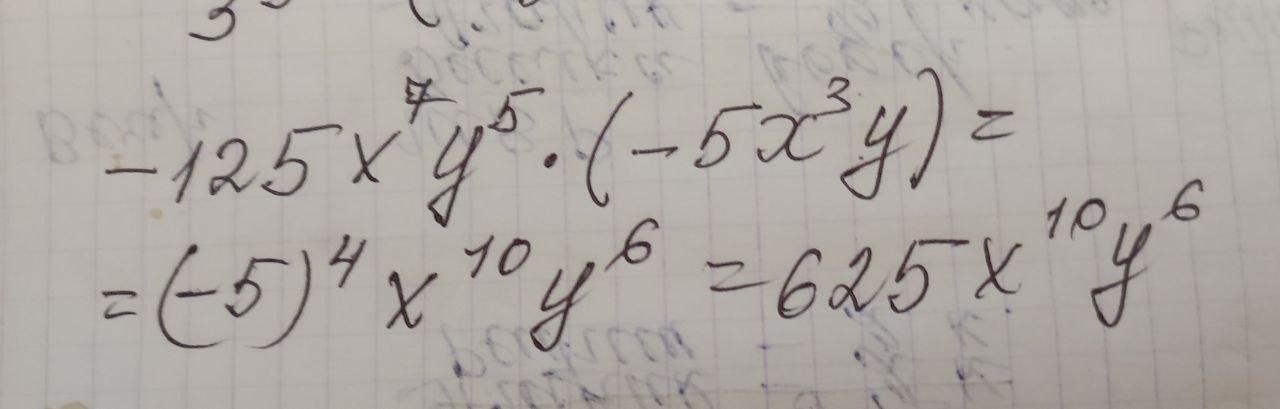 -125x⁷y⁵·(-5x³y)=
=(-5)⁴x¹⁰y⁶=625x¹⁰y⁶